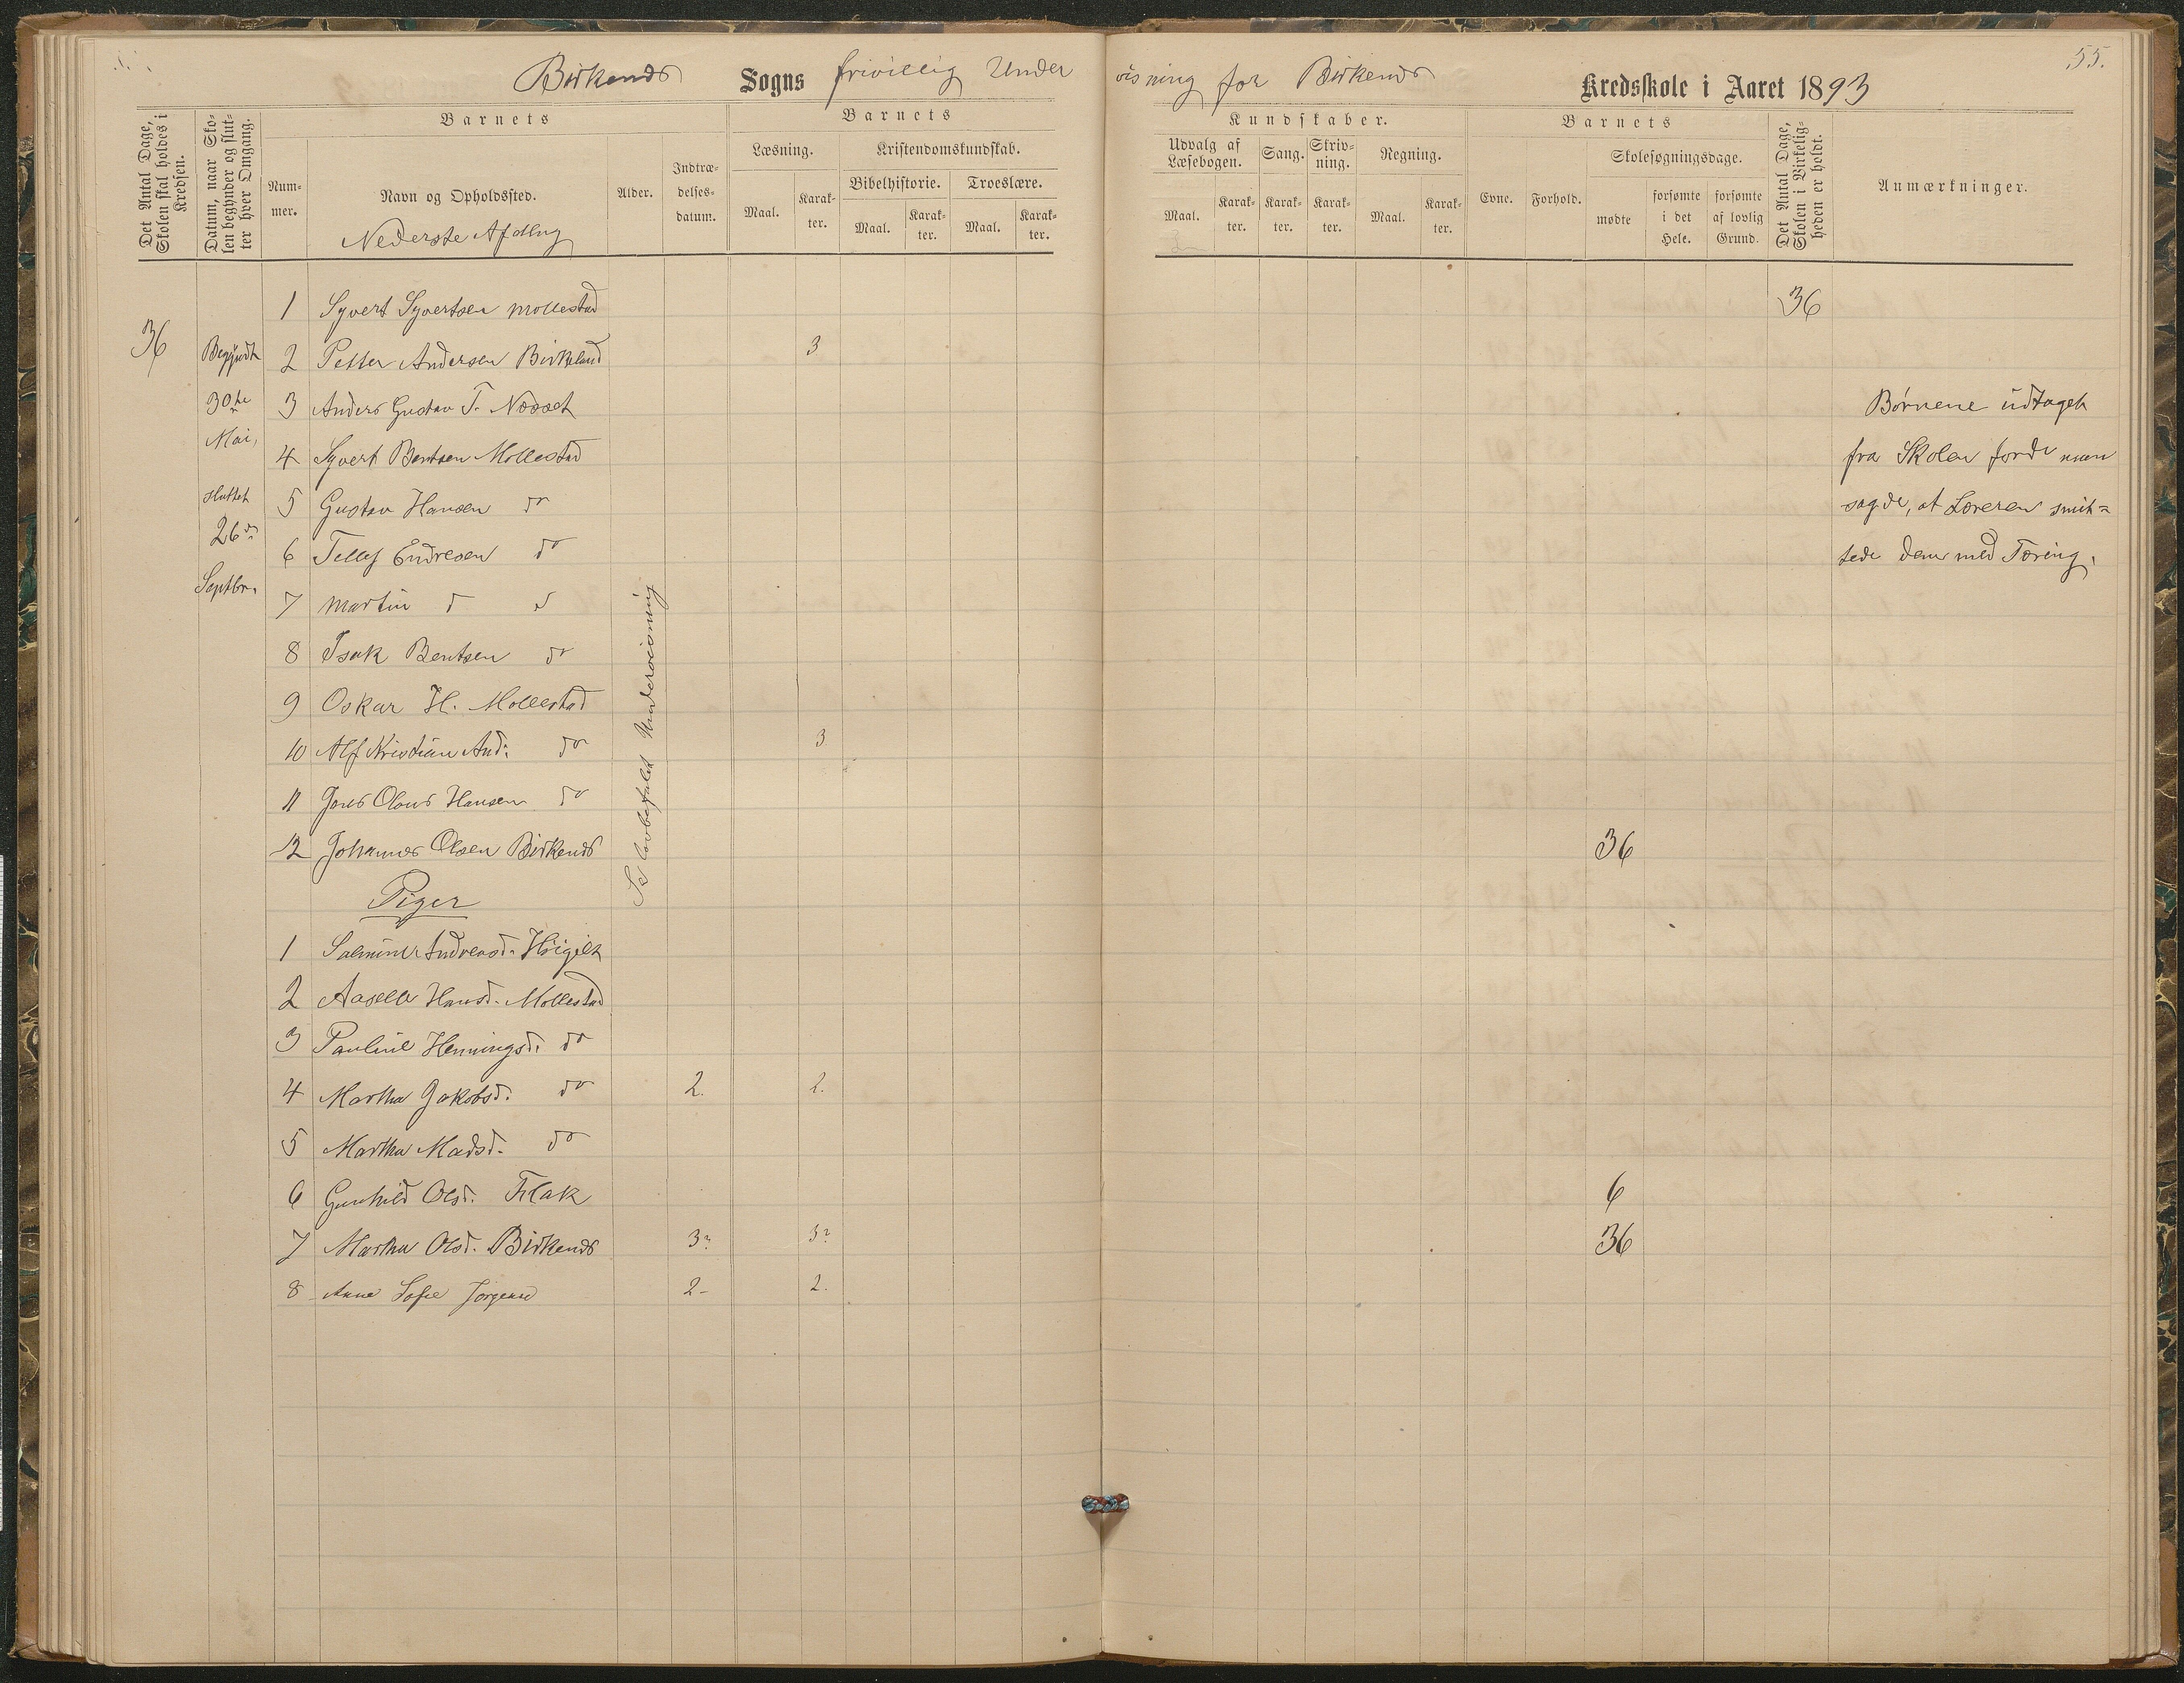 55.
Birkenes Sogns frivillig Undervisning for Birkenes Kredsskole i Aaret 1893
Det Antal Dage, Skolen skal holdes i Kredsen.
Datum, naar Skolen begynder og slutter hver Omgang.
Barnets
Nummer.
Navn og Opholdssted.
Nederste Afdlng
Alder.
Indtrædelsesdatum.
Barnets
Læsning.
Maal.
Karakter.
Kristendomskundskab.
Bibelhistorie.
Maal.
Karakter.
Troeslære.
Maal.
Karakter.
Kundskaber.
Udvalg af Læsebogen.
Maal.
Karakter.
Sang.
Karakter.
Skrivning.
Karakter.
Regning.
Maal.
Karakter.
Barnets
Evne.
Forhold.
Skolesøgningsdage.
mødte
forsømte i det Hele.
forsømte af lovlig Grund.
Det Antal Dage, Skolen i Virkeligheden er holdt.
Anmærkninger.
36
Begyndt
30te
Mai,
sluttet
26de
Septbr.
1 Syvert Syvertsen Mollestad 36
2 Petter Andersen Birkeland 3
3 Anders Gustav T. Næset
4 Syvert Bentsen Mollestad
5 Gustav Hansen do
6 Tellef Endresen do
7 Martin d d
8 Isak Bentsen do
9 Oskar H. Mollestad
10 Alf Kristian And: do 3
11 Jens Olaus Hansen do
12 Johannes Olsen Birkenes 36
lovbefalet Undervisning
Børnene udtaget
fra Skolen fordi man
sagde, at Læreren smit-
tede dem med Tæring.
Piger
1 Salmine Andreasd. Høigilt
2 Aaselle Hansd. Mollestad
3 Pauline Henningsd. do
4 Martha Jakobsd. do 2. 2.
5 Martha Madsd. do
6 Gunhild Olsd. Flak 6
7 Martha Olsd. Birkenes 3? 3? 36
8 Anna Sofie Jørgensd 2- 2.